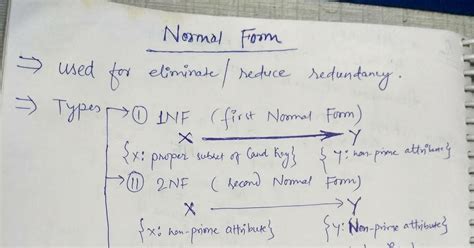 Normal Form
⇒ used for eliminate / reduce redundancy.
⇒ Types → (I) 1NF (first Normal Form)
X → Y
{X: proper subset of Cand Key} { Y: non-prime attribute}
→ (II) 2NF (second Normal Form)
X → Y
{X: non-prime attribute} {Y: Non-prime attribute